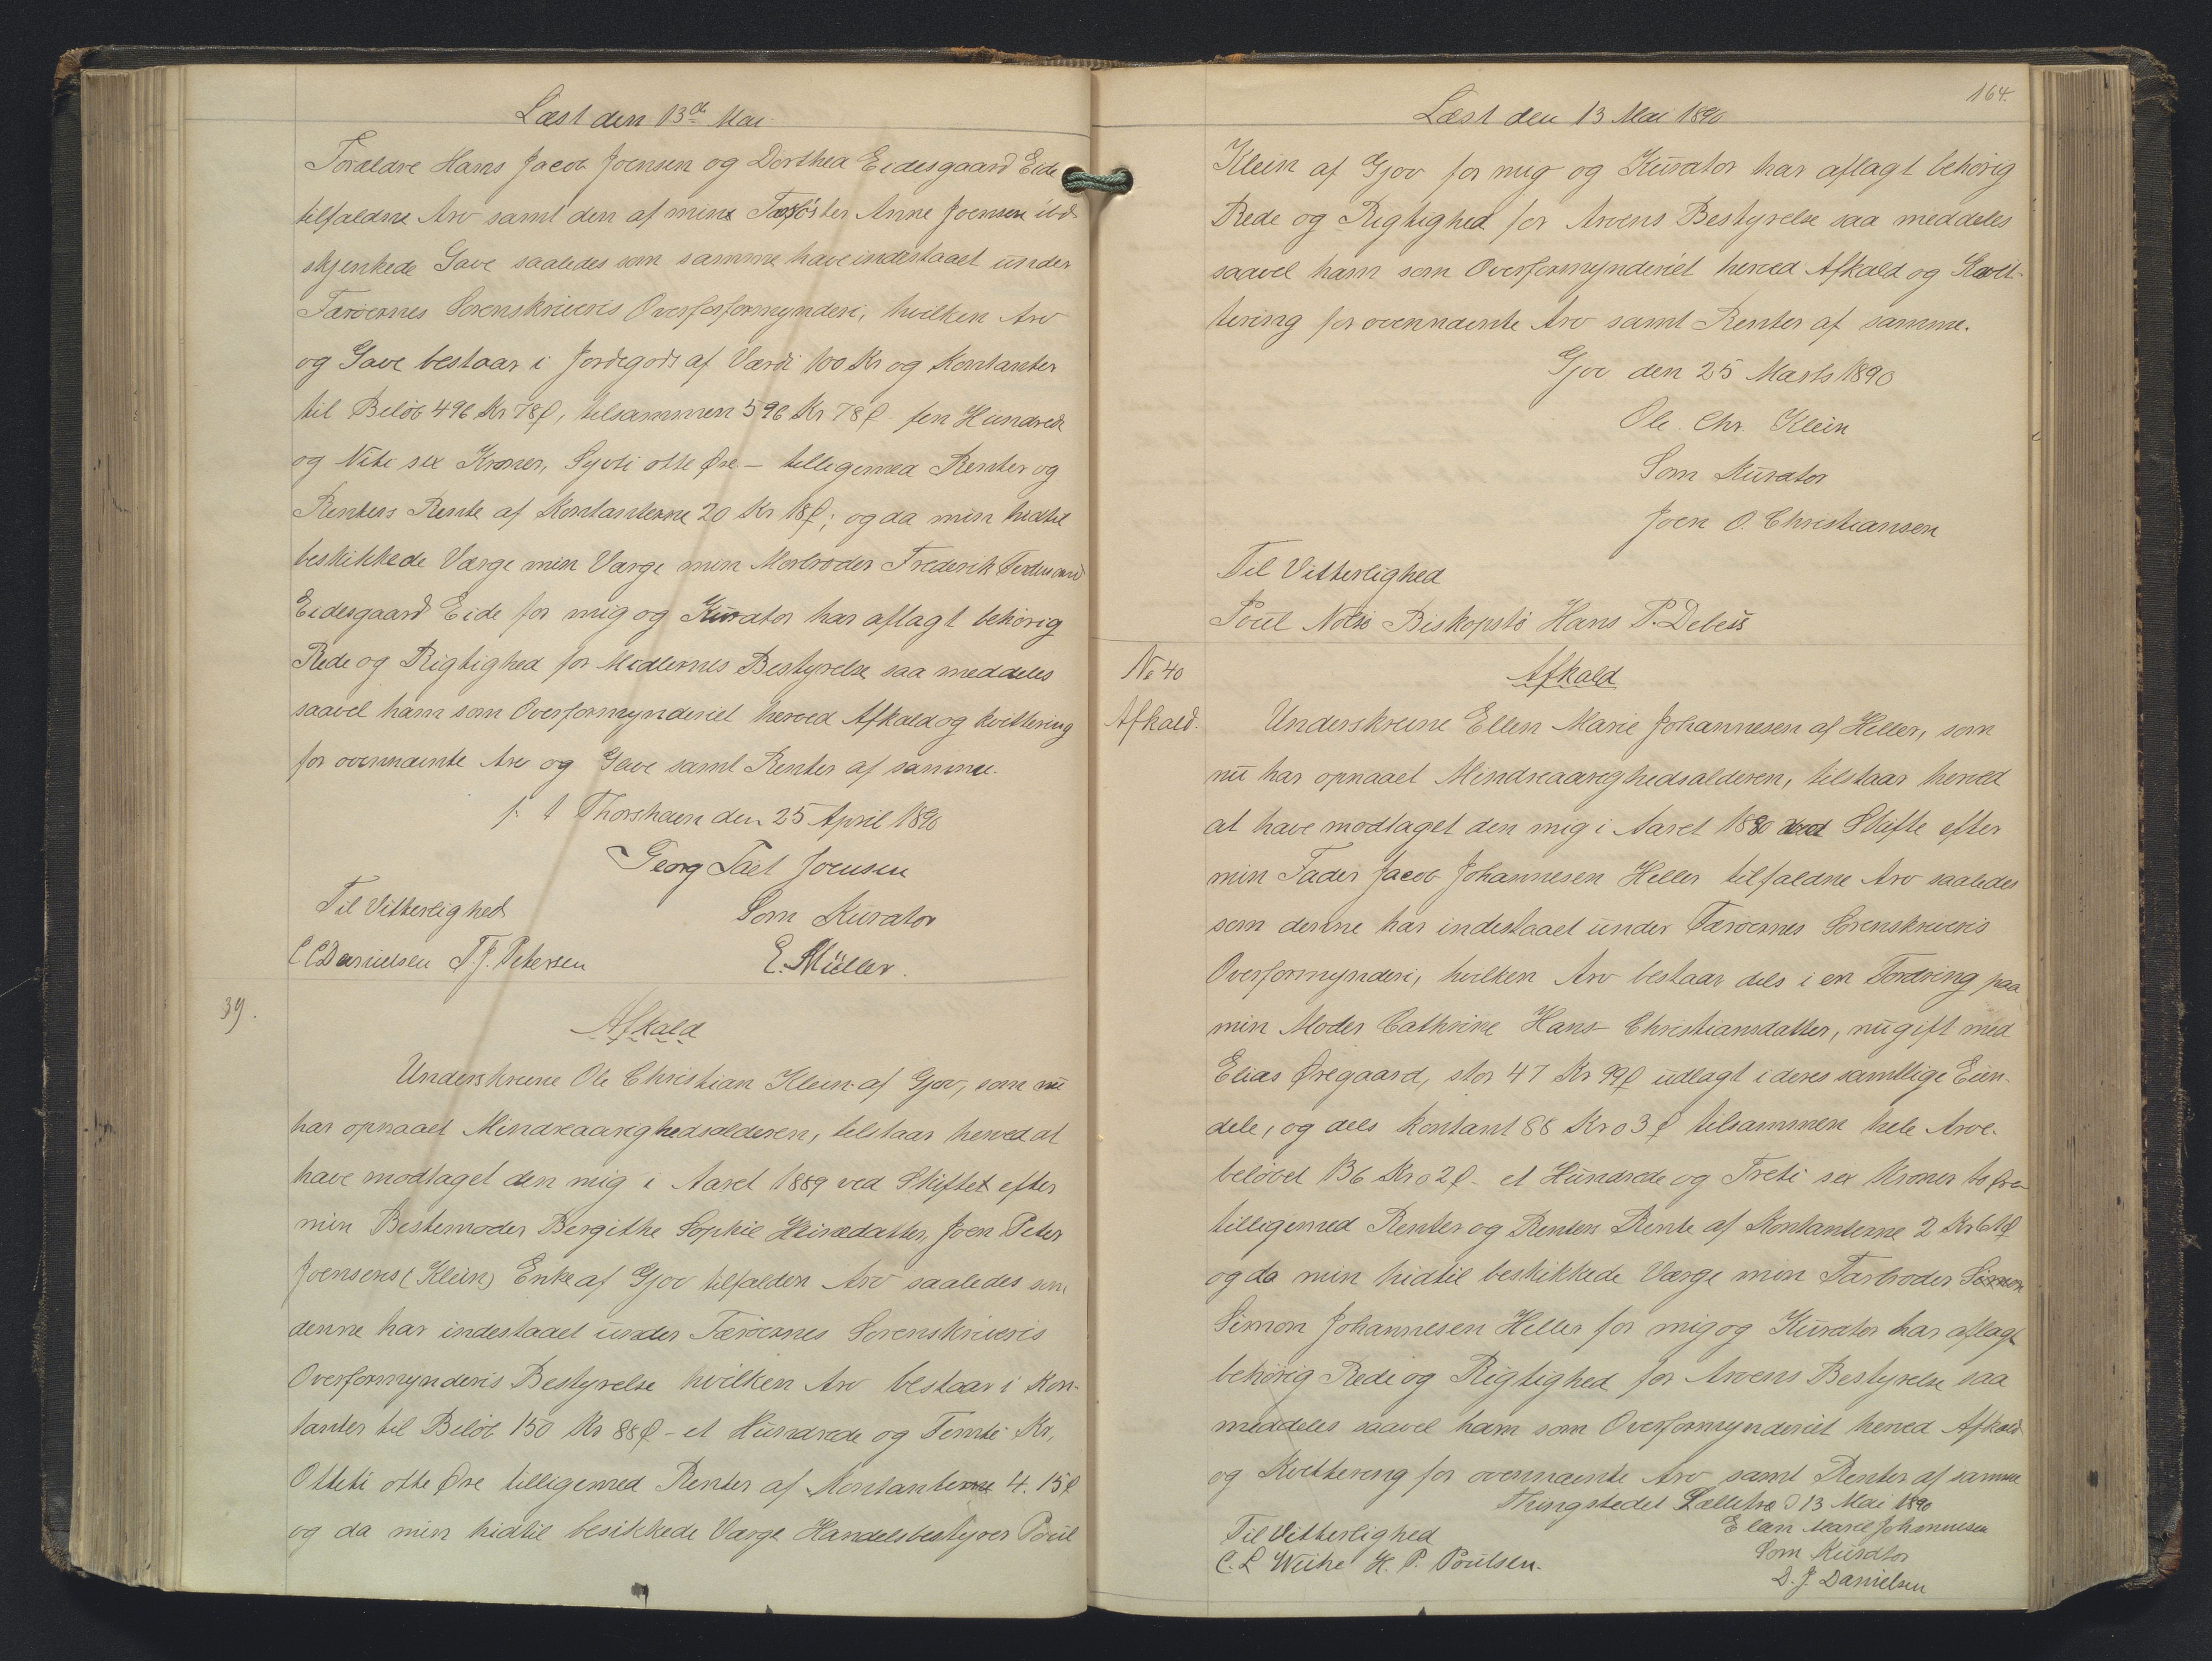 Læst den 13de Mai
Forældre Hans Jacob Joensen og Dorthea Eidesgaard Eide
tilfaldne Arv samt den af mine Faster Anne Joensen ibd
skjenkede Gave saaledes som samme have indestaaet under
Færøernes Sorenskriveris Overforformynderi, hvilken Arv
og Gave bestaar i Jordegods af Værdi 100 Kr og Kontanter
til Beløb 496 Kr 78 Ø, tilsammen 596 Kr 78 Ø fem Hundrede
og Niti sex Kroner, Syvti otte Øre – tilligemed Renter og
Renters Rente af Kontanterne 20 Kr 18 Ø; og da min hidtil
beskikkede Værge min Værge min Morbroder Frederik Ferdinand
Eidesgaard Eide for mig og Kurator har aflagt behørig
Rede og Rigtighed for Midlernes Bestyrelse saa meddeles
saavel ham som Overformynderiet herved Afkald og kvittering
for ovennævnte Arv og Gave samt Renter af samme.
p. t Thorshavn den 25 April 1890
Georg Joensen
Til Vitterlighed Som Kurator
C C Danielsen T. J. Petersen E. Müller.
39.
Afkald
Underskrevne Ole Christian Klein af Gjov, som nu
har opnaaet Mindreaarighedsalderen, tilstaar herved at
have modtaget den mig i Aaret 1889 ved Skiftet efter
min Bestemoder Bergithe Sophie Heinedatter, Joen Peter
Joensens (Klein) Enke af Gjov tilfalden Arv saaledes som
denne har indestaaet under Færøernes Sorenskriveris
Overformynderis Bestyrelse hvilken Arv bestaar i Kon-
tanter til Beløb 150 Kr 88 Ø – et Hundrede og Femti Kr,
Otteti otte Øre tilligemed Renter af Kontanterne 4. 15 Ø
og da min hidtil besikkede Værge Handelsbestyrer Poul
164.
Læst den 13 Mai 1890
Klein af Gjov for mig og Kurator har aflagt behørig
Rede og Rigtighed for Arvens Bestyrelse saa meddeles
saavel ham som Overformynderiet herved Afkald og Kvit-
tering for ovennævnte Arv samt Renter af samme.
Gjov den 25 Marts 1890
Ole Chr. Klein
Som Kurator
Joen O. Christiansen
Til Vitterlighed
Poul Nolsø Biskopstø Hans P. Debes
No 40
Afkald
Afkald.
Underskrevne Ellen Marie Johannesen af Heller, som
nu har opnaaet Mindreaarighedsalderen, tilstaar herved
at have modtaget den mig i Aaret 1880 ved Skifte efter
min Fader Jacob Johannesen Heller tilfaldne Arv saaledes
som denne har indestaaet under Færøernes Sorenskriveris
Overformynderi, hvilken Arv bestaar dels i en Fordring paa
min Moder Cathrine Hans Christiansdatter, nu gift med
Elias Øregaard, stor 47 Kr 99 Ø udlagt i deres samtlige Eien-
dele, og dels kontant 88 Kr 03 Ø tilsammen hele Arve-
beløbet 136 Kr 02 Ø – et Hundrede og Treti sex Kroner to Øre
tilligemed Renter og Renters Rente af Kontanterne 2 Kr 61 Ø
og da min hidtil beskikkede Værge min Farbroder Simon
Simon Johannesen Heller for mig og Kurator har aflagt
behørig Rede og Rigtighed for Arvens Bestyrelse saa
meddeles saavel ham som Overformynderiet herved Afkald
og Kvittering for ovennævnte Arv samt Renter af samme
Thingstedet Sælletræ d 13 Mai 1890
Til Vitterlighed Ellen Marie Johannesen
C. L Weihe H. P. Poulsen. Som Kurator
D. J. Danielsen